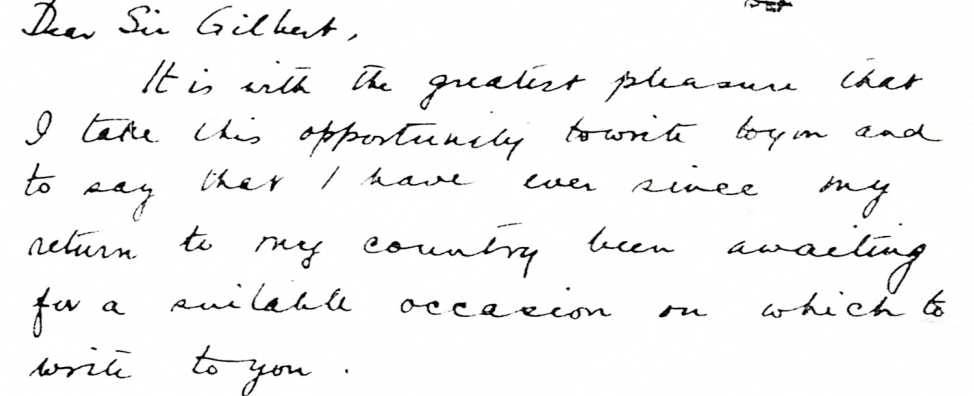 Dear Sir Gilbert,
It is with the greatest pleasure that
I take this opportunity to write to you and
to say that I have ever since my
return to my country been awaiting
for a suitable occasion on which to
write to you.